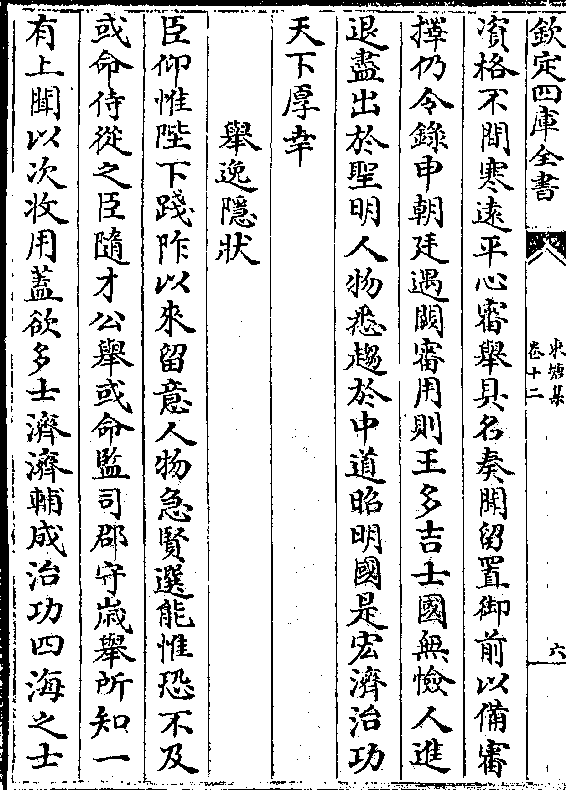 欽定四庫全書
東塘集
卷十二
六
資格不間寒遠平心審舉具名奏聞留置御前以備審
擇仍令錄申朝廷遇闕審用則王多吉士國無憸人進
退盡出於聖明人物悉趨於中道昭明國是宏濟治功
天下厚幸
舉逸隱狀
臣仰惟陛下踐阼以來留意人物急賢選能惟恐不及
或命侍從之臣隨才公舉或命監司郡守歳舉所知一
有上聞以次收用蓋欲多士濟濟輔成治功四海之士